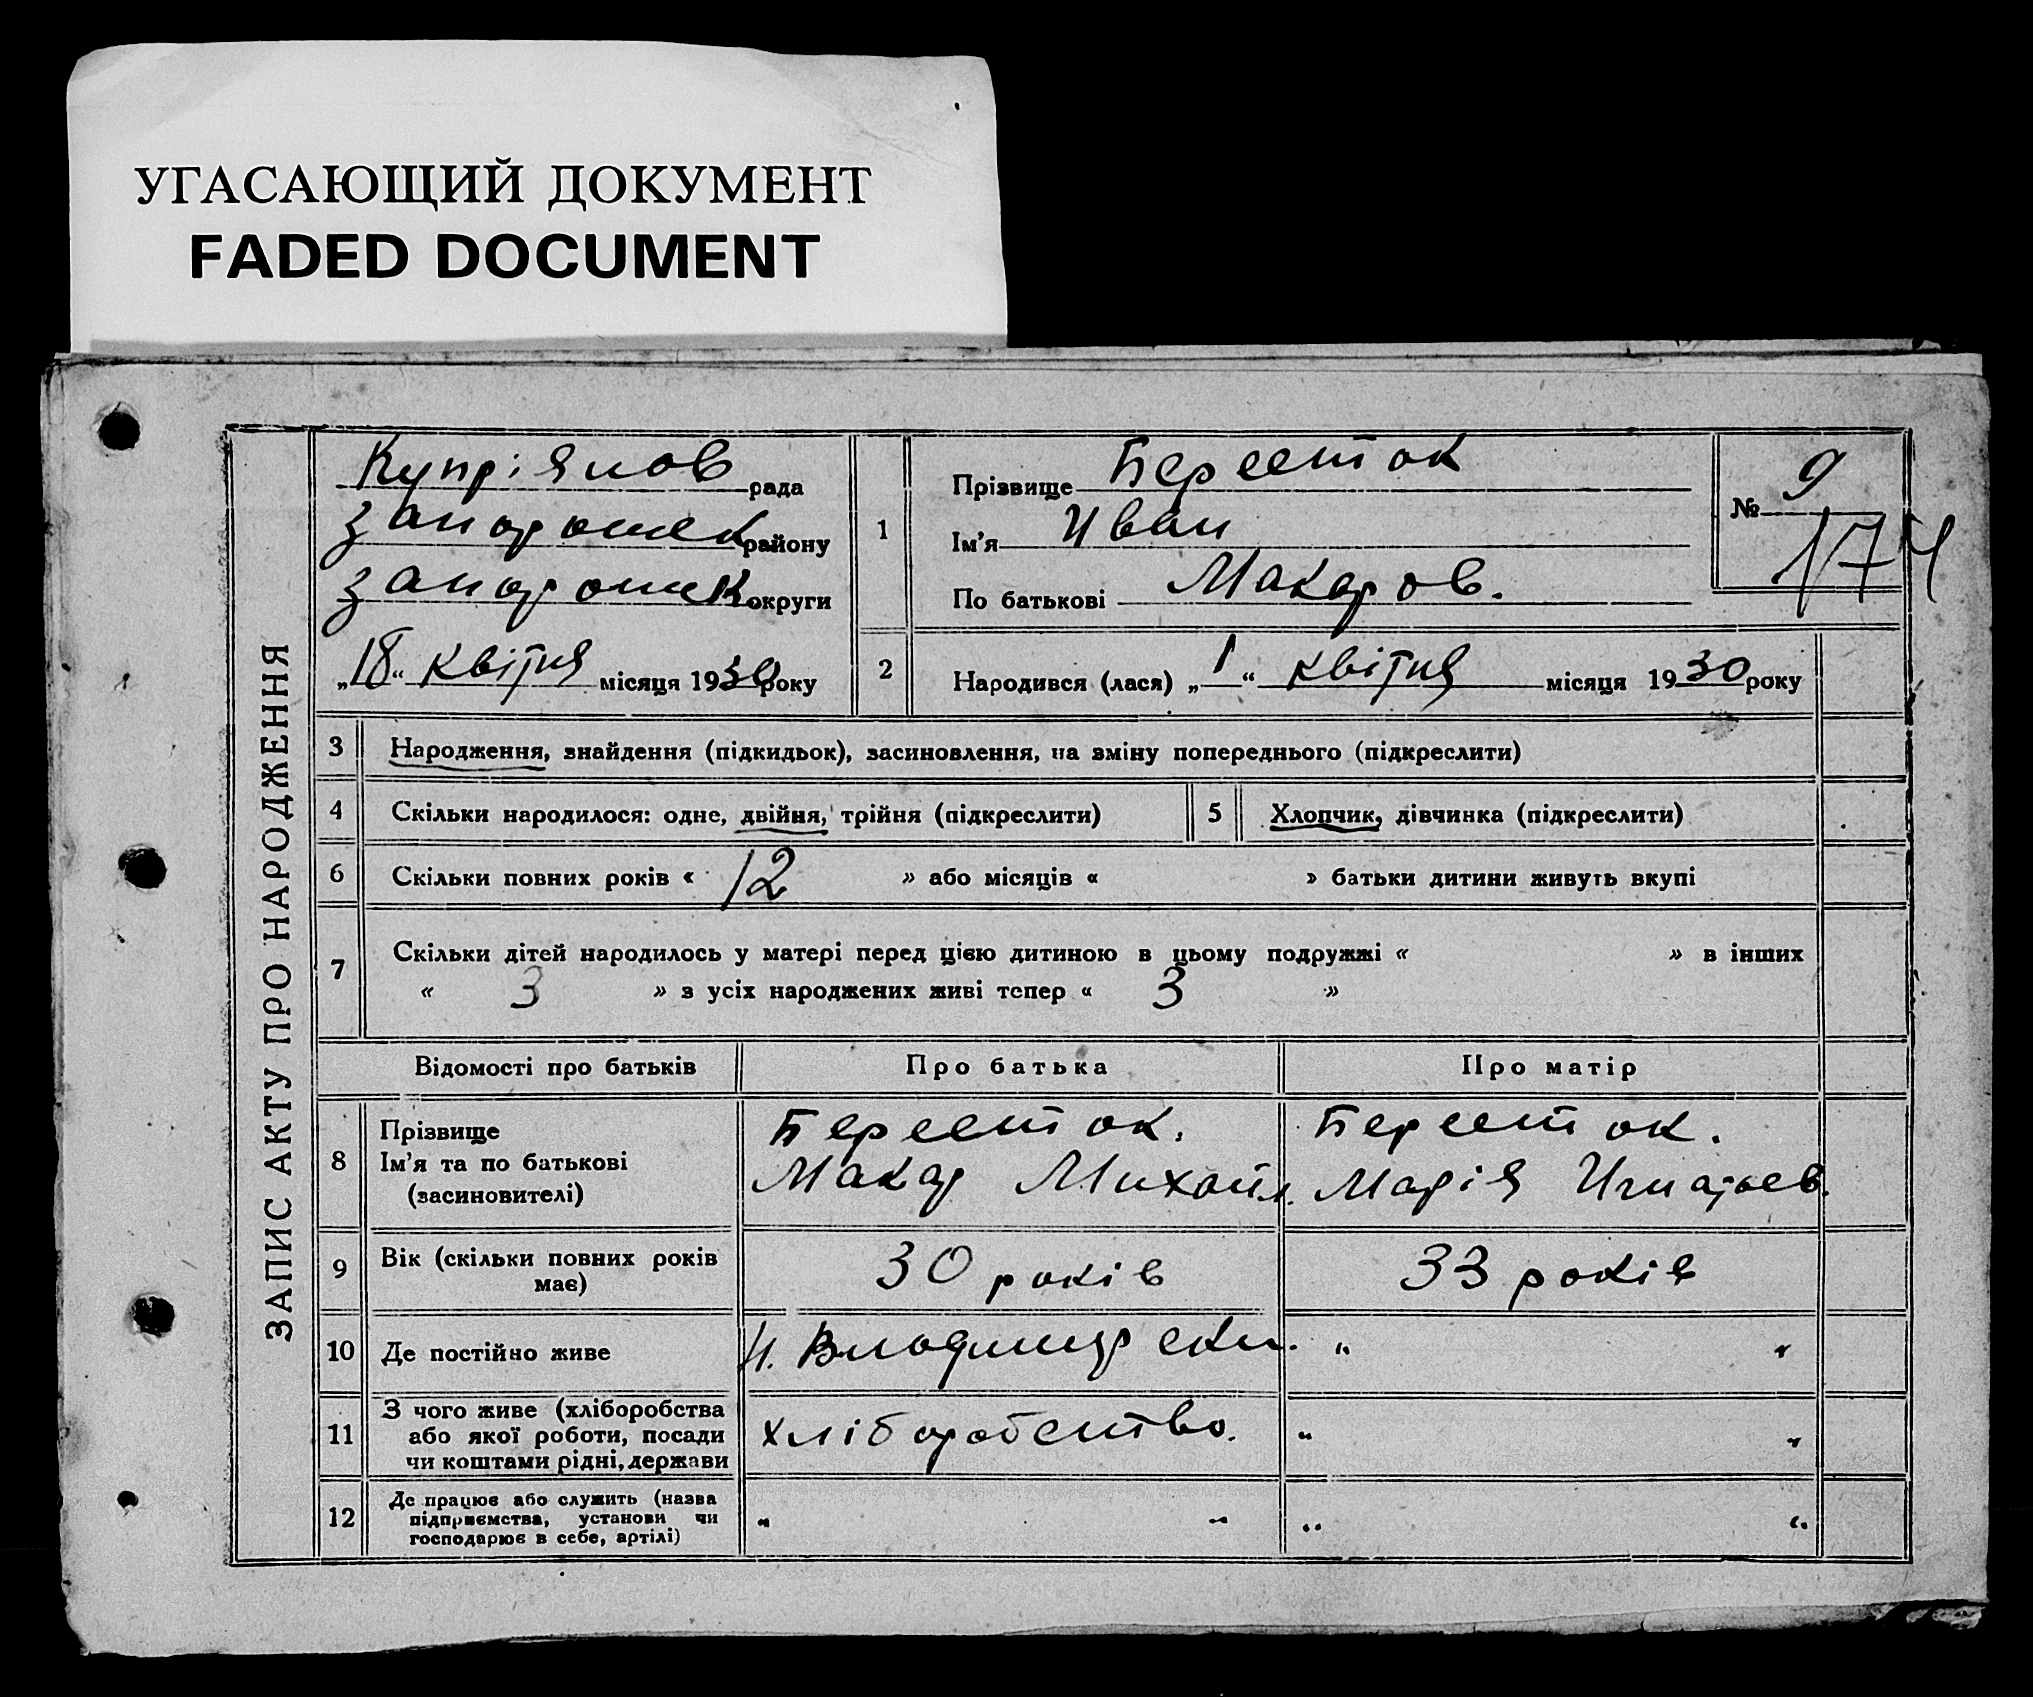 УГАСАЮЩИЙ ДОКУМЕНТ
FADED DOCUMENT
ЗАПИС АКТУ ПРО НАРОДЖЕННЯ
Купріянов рада
Запорожск району
Запорожск округи
„18“ квітня місяця 1930 року
1
Прізвище Бересток
Ім'я Иван
По батькові Макаров.
№ 9
174
2 Народився (лася) „1“ квітня місяця 1930 року
3 Народження, знайдення (підкидьок), засиновлення, на зміну попереднього (підкреслити)
4 Скільки народилося: одне, двійня, трійня (підкреслити)
5 Хлопчик, дівчинка (підкреслити)
6 Скільки повних років « 12 » або місяців « » батьки дитини живуть вкупі
7 Скільки дітей народилось у матері перед цією дитиною в цьому подружжі « » в інших
« 3 » з усіх народжених живі тепер « 3 »
Відомості про батьків Про батька Про матір
8 Прізвище
Ім'я та по батькові
(засиновителі)
Бересток.
Макар Михайл.
Бересток.
Марія Игнатьев.
9 Вік (скільки повних років
має)
30 років
33 років
10 Де постійно живе
Н. Владимирскн. " "
11 З чого живе (хліборобства
або якої роботи, посади
чи коштами рідні, держави
хліборобство. " "
12 Де працює або служить (назва
підприємства, установи чи
господарює в себе, артілі)
" " " "